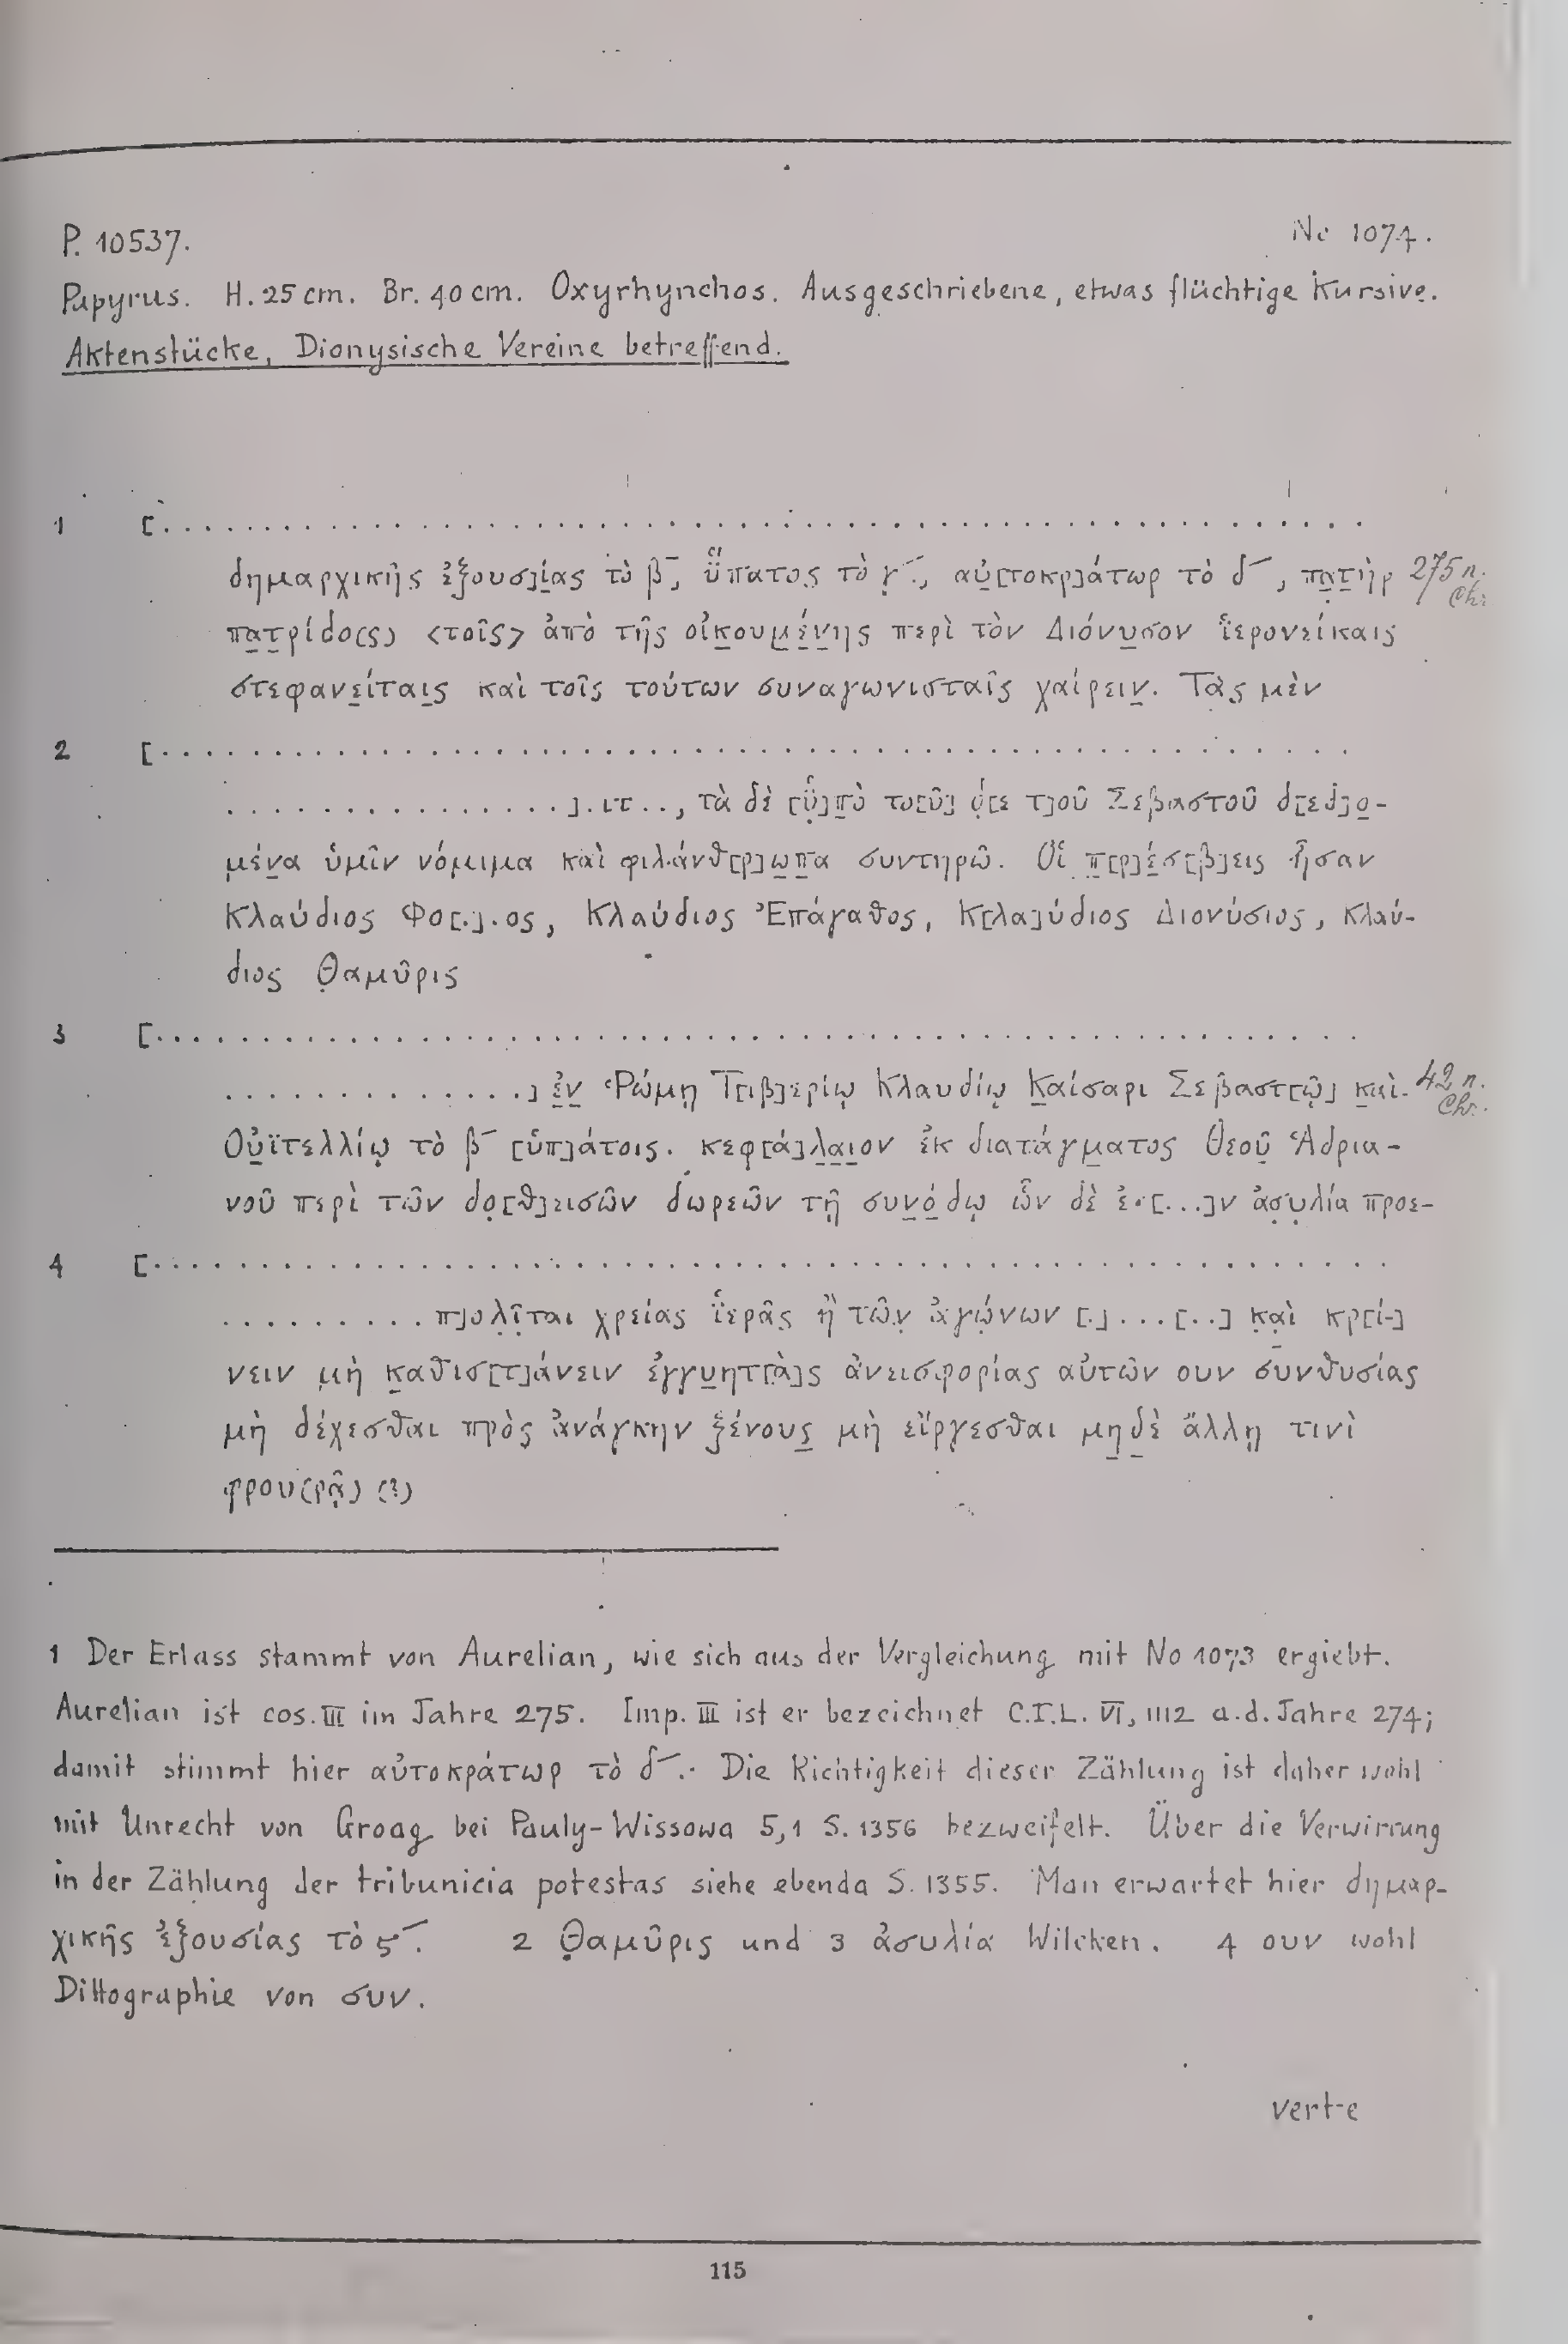 P. 10537. No 1074.
Papyrus. H. 25 cm. Br. 40 cm. Oxyrhynchos. Ausgeschriebene, etwas flüchtige Kursive.
Aktenstücke, Dionysische Vereine betreffend.
1 [. . . . . . . . . . . . . . . . . . . . . . . . . . . . . . . . . . . . . . . .
δημαρχικῆς ἐξουσ]ίας τὸ β‾, ὕπατος τὸ γ‾, αὐ[τοκρ]άτωρ τὸ δ‾, πατὴρ 275 n. Chr.
πατρίδο(ς) <τοῖς> ἀπὸ τῆς οἰκουμένης περὶ τὸν Διόνυσον ἱερονείκαις
στεφανείταις καὶ τοῖς τούτων συναγωνισταῖς χαίρειν. Τὰς μὲν
2 [. . . . . . . . . . . . . . . . . . . . . . . . . . . . . . . . . . . . . . . .
. . . . . . . . . . . . . . .].ιτ.., τὰ δὲ [ὑ]πὸ το[ῦ] θ[ε τ]οῦ Σεβαστοῦ δ[εδ]ο-
μένα ὑμῖν νόμιμα καὶ φιλάνθ[ρ]ωπα συντηρῶ. Οἱ π[ρ]έσ[β]εις ἦσαν
Κλαύδιος Φο[.].ος, Κλαύδιος Ἐπάγαθος, Κ[λα]ύδιος Διονύσιος, Κλαύ-
διος Θαμῦρις
3 [. . . . . . . . . . . . . . . . . . . . . . . . . . . . . . . . . . . . . . . .
. . . . . . . . . . . . . .] ἐν Ῥώμῃ Τ[ιβ]ερίῳ Κλαυδίῳ Καίσαρι Σεβαστ[ῷ] καὶ 42 n. Chr.
Οὐϊτελλίῳ τὸ β‾ [ὑπ]άτοις. κεφ[ά]λαιον ἐκ διατάγματος θεοῦ Ἁδρια-
νοῦ περὶ τῶν δο[θ]εισῶν δωρεῶν τῇ συνόδῳ ὧν δὲ ἐ.[...]ν ἀσυλία προε-
4 [. . . . . . . . . . . . . . . . . . . . . . . . . . . . . . . . . . . . . . . .
. . . . . . . . . π]ολῖται χρείας ἱερᾶς ἢ τῶν ἀγώνων [.]...[..] καὶ κρ[ί-]
νειν μὴ καθισ[τ]άνειν ἐγγυητ[ὰ]ς ἀνεισφορίας αὐτῶν ουν συνθυσίας
μὴ δέχεσθαι πρὸς ἀνάγκην ξένους μὴ εἴργεσθαι μηδὲ ἄλλῃ τινὶ
φρου(ρᾷ) (?)
1 Der Erlass stammt von Aurelian, wie sich aus der Vergleichung mit No 1073 ergiebt.
Aurelian ist cos. III im Jahre 275. Imp. III ist er bezeichnet C.I.L. VI, 1112 a. d. Jahre 274;
damit stimmt hier αὐτοκράτωρ τὸ δ‾. Die Richtigkeit dieser Zählung ist daher wohl
mit Unrecht von Groag bei Pauly-Wissowa 5,1 S. 1356 bezweifelt. Über die Verwirrung
in der Zählung der tribunicia potestas siehe ebenda S. 1355. Man erwartet hier δημαρ-
χικῆς ἐξουσίας τὸ ϛ‾. 2 Θαμῦρις und 3 ἀσυλία Wilcken. 4 ουν wohl
Dittographie von συν.
verte
115